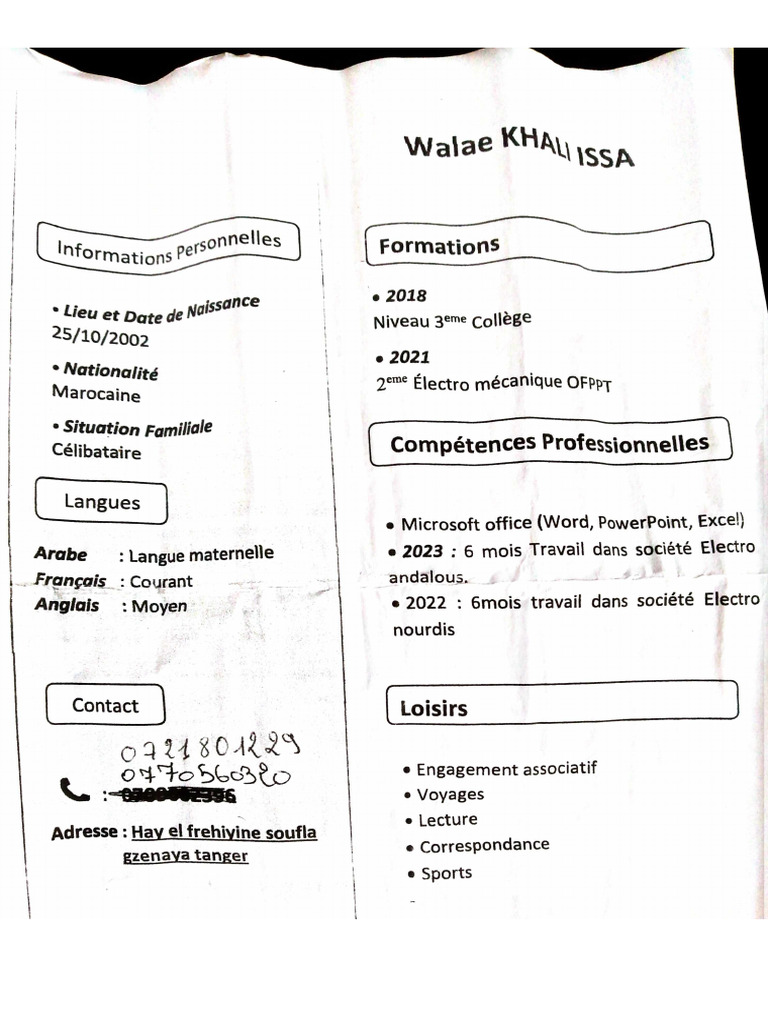 Walae KHALI ISSA
Informations Personnelles
• Lieu et Date de Naissance
25/10/2002
• Nationalité
Marocaine
• Situation Familiale
Célibataire
Langues
Arabe : Langue maternelle
Français : Courant
Anglais : Moyen
Contact
0721801229
0770560320
:
Adresse : Hay el frehiyine soufla
gzenaya tanger
Formations
• 2018
Niveau 3eme Collège
• 2021
2eme Électro mécanique OFPPT
Compétences Professionnelles
• Microsoft office (Word, PowerPoint, Excel)
• 2023 : 6 mois Travail dans société Electro
andalous.
• 2022 : 6mois travail dans société Electro
nourdis
Loisirs
• Engagement associatif
• Voyages
• Lecture
• Correspondance
• Sports
-